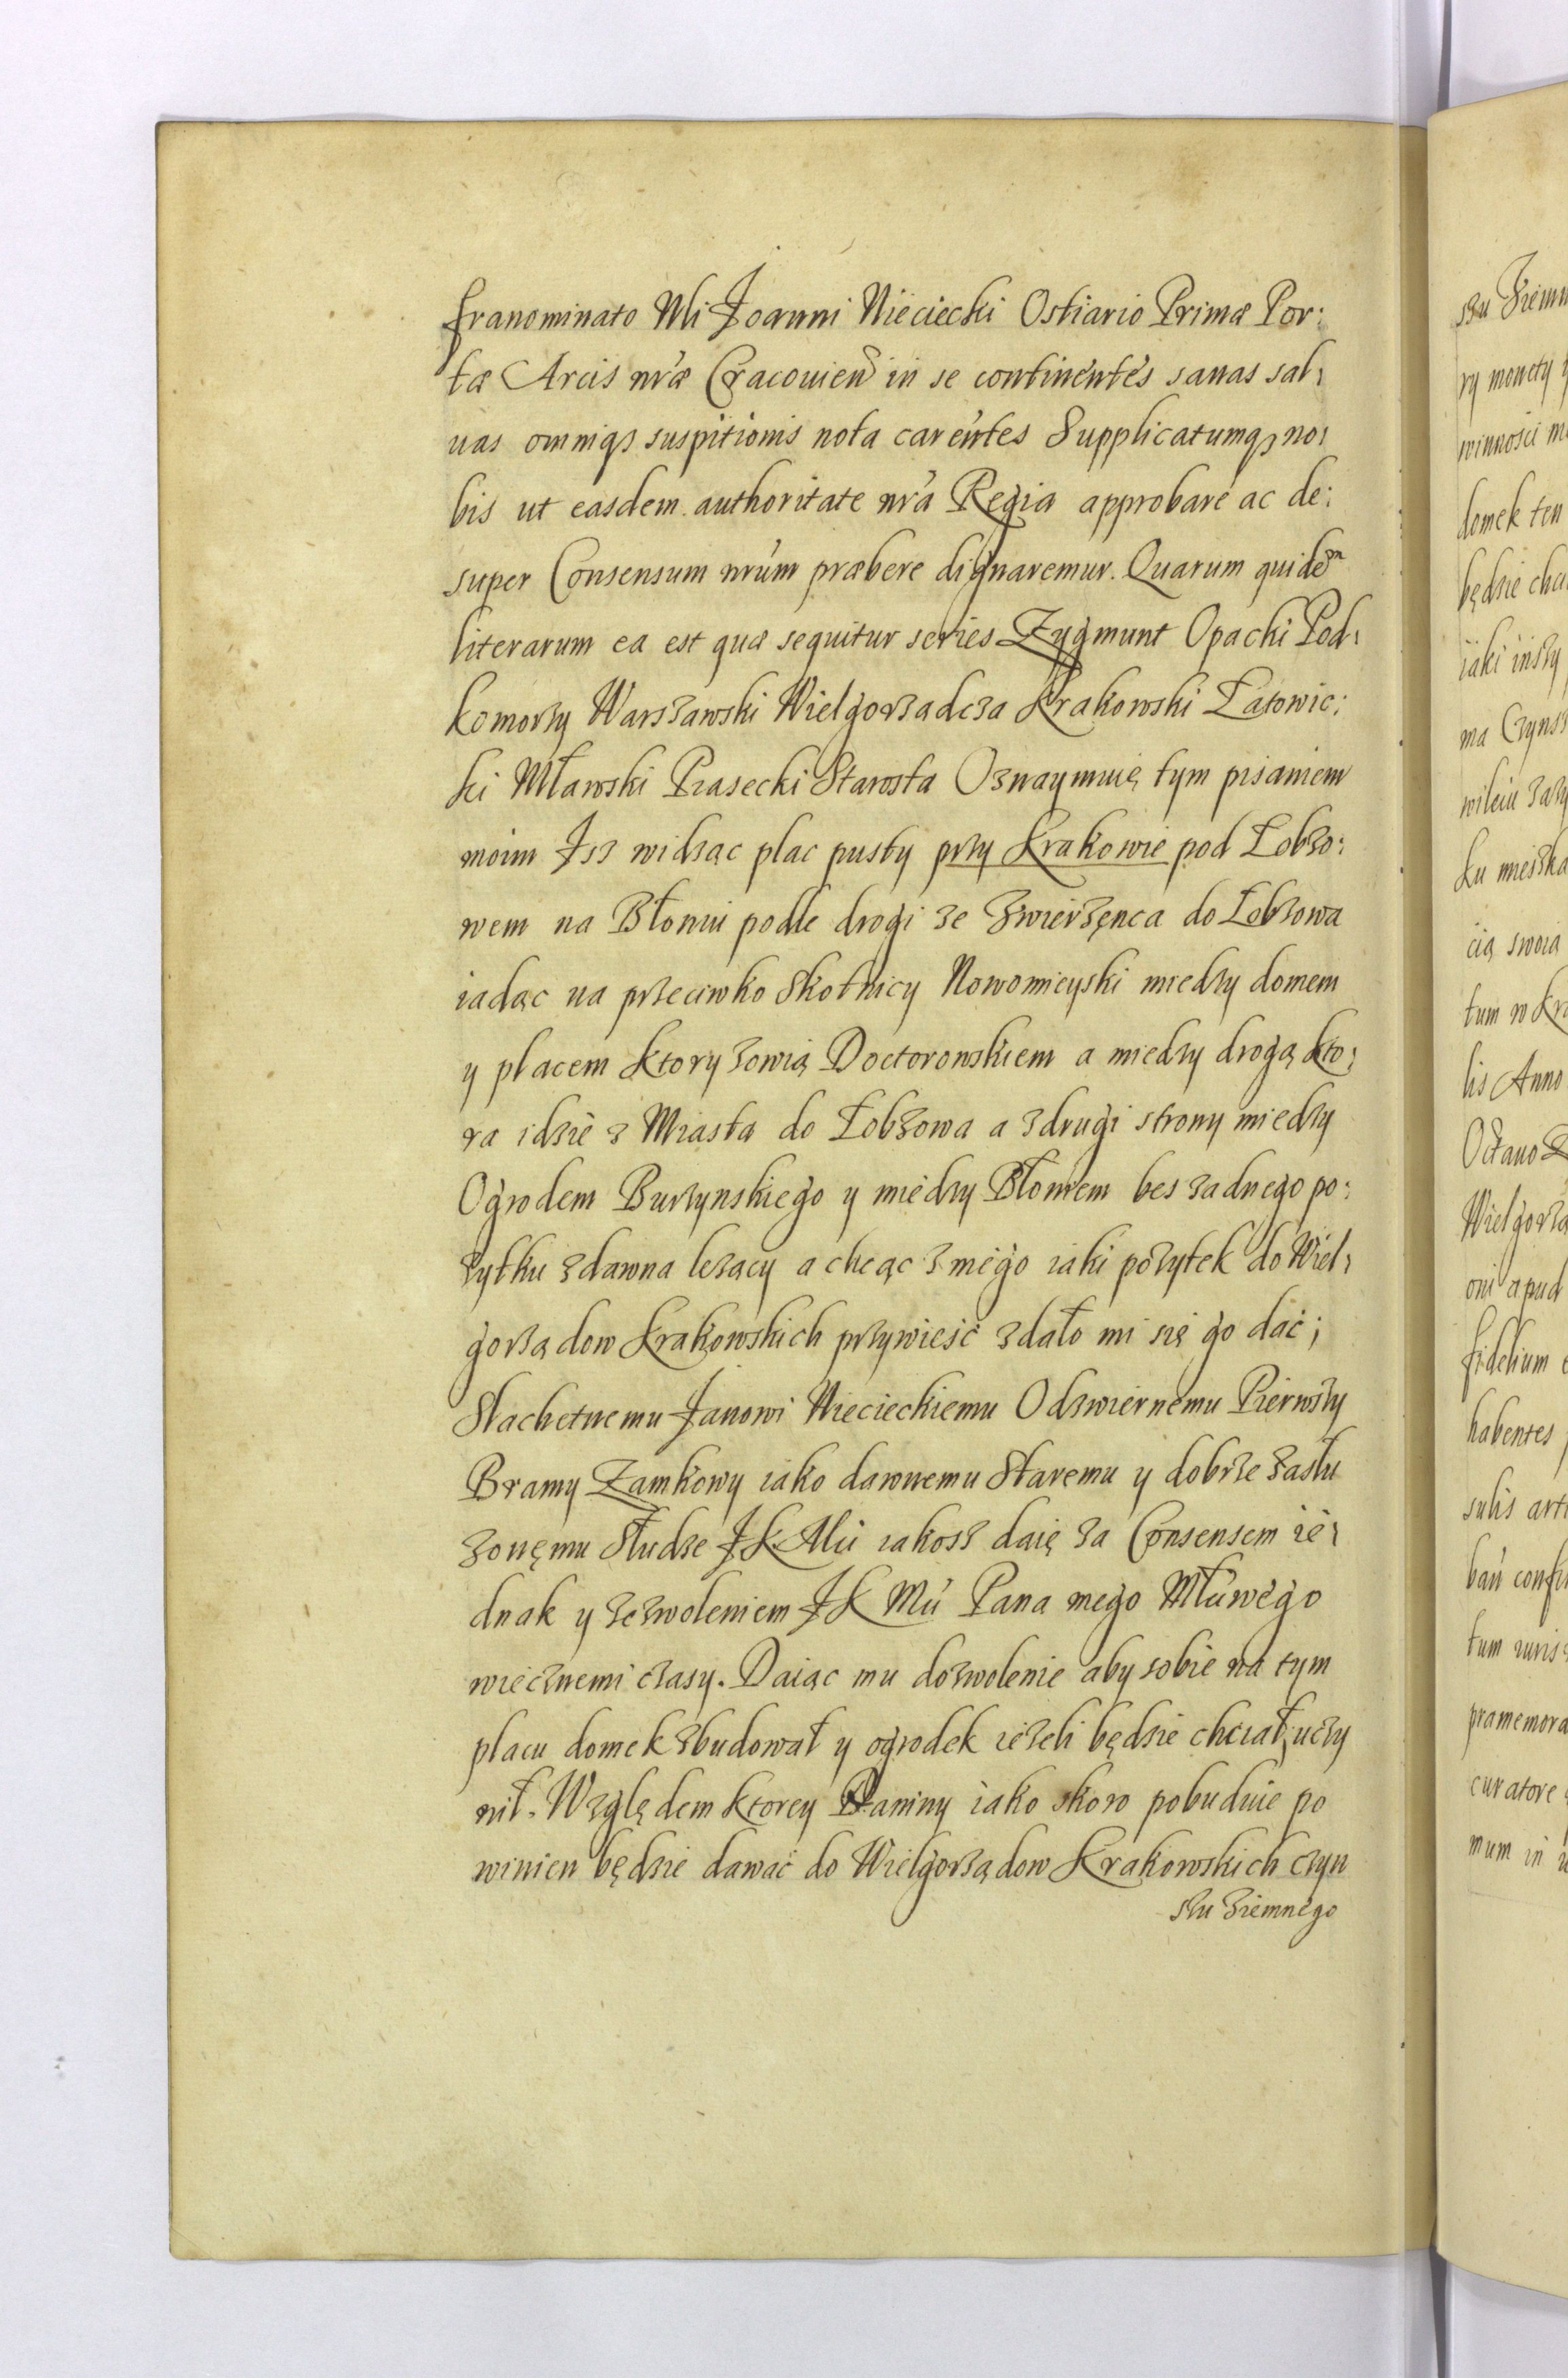 franominato Nli Joanni Nieciecki Ostiario Primæ Por:
tæ Arcis nr̃æ Cracouień in se continentes sanas sal,
uas omniqȝ suspitionis nota carentes Supplicatumqȝ no,
bis ut easdem authoritate nr̃a Regia approbare ac de:
super Consensum nr̃um præbere dignaremur. Quarum quidem
literarum ea est quæ sequitur series Zygmunt Opacki Pod,
komorzy Warszawski Wielgorzadcza Krakowski Latowic:
ki Mławski Piasecki Starosta Oznaymuię tym pisaniem
moim Jsz widząc plac pusty przy Krakowie pod Łobzo:
wem na Błoniu podle drogi ze Zwierzęnca do Łobzowa
iadąc na przeciwko Skotnicy Nowomieyski miedzy domem
y placem ktory zowią Doctorowskiem a miedzy drogą kto,
ra idzie z Miasta do Łobzowa a zdrugi strony miedzy
Ogrodem Burzynskiego y miedzy Błoniem bes zadnego po:
zytku zdawna lezacy a chcąc z niego iaki pożytek do Wiel,
gorządow Krakowskich przywieść zdało mi się go dać;
Slachetnemu Janowi Niecieckiemu Odzwiernemu Pierwszy
Bramy Zamkowy iako dawnemu Staremu y dobrze zasłu
zonęmu Słudze JK Mci iakosz daię za Consensem ie,
dnak y zezwoleniem JK Mci Pana mego Młciwego
wiecznemi czasy. Daiąc mu dozwolenie aby sobie na tym
placu domek zbudował y ogrodek ieżeli będzie chciał uczy
nił. Względem ktorey Daniny iako skoro pobuduie po
winien będzie dawać do Wielgorządow Krakowskich czyn
szu ziemnego
szu Ziemn
ry monety
winnosci
domek ten
będzie
iaki inszy
ma Czynsz
wileiu
ku mieszka
cią swoią
tum w Kra
lis Anno
Octauo
Wielgorzą
oni apud
fidelium
habentes
sulis arti
tum iuris
præmemora
curatore
mum in